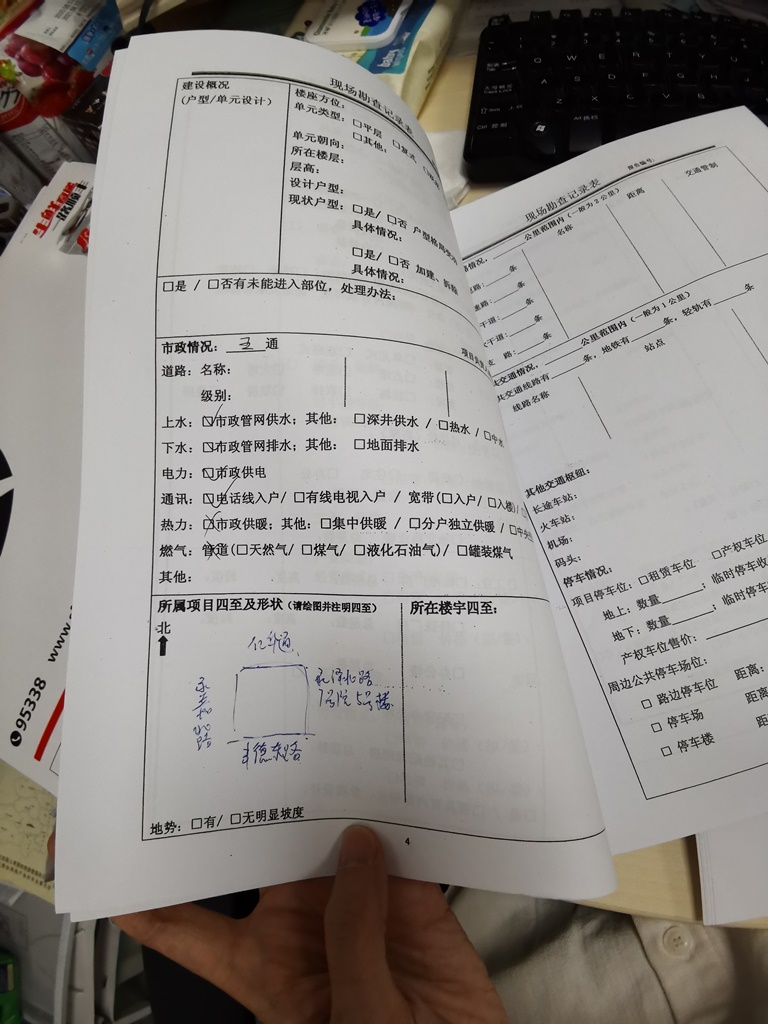 现场勘查记录表
建设概况
(户型/单元设计)
楼座方位:
单元类型: □平层 □复式
□其他:
单元朝向:
所在楼层:
层高:
设计户型:
现状户型: □是/ □否 户型格局变
具体情况:
□是/ □否 加建、拆除
具体情况:
□是 / □否有未能进入部位，处理办法:
市政情况: 五 通
道路: 名称:
级别:
上水: ☑市政管网供水; 其他: □深井供水 / □热水 / □中水
下水: ☑市政管网排水; 其他: □地面排水
电力: ☑市政供电
通讯: ☑电话线入户/ □有线电视入户 / 宽带(□入户/ □入楼)/
热力: □市政供暖; 其他: □集中供暖 / □分户独立供暖 / □中央
燃气: 管道(□天然气/ □煤气/ □液化石油气)/ □罐装煤气
其他:
所属项目四至及形状 (请绘图并注明四至)
所在楼宇四至:
北
7号院5号楼
地势: □有/ □无明显坡度
4
报告编号:
现场勘查记录表
公里范围内 (一般为2公里)
名称
距离
交通管制
路: 条
速路: 条
干道: 条
干道: 条
支 路: 条
公里范围内 (一般为1公里)
共交通线路有 条, 地铁有 条, 轻轨有 条
线路名称
站点
其他交通枢纽:
长途车站:
火车站:
机场:
码头:
停车情况:
项目停车位: □租赁车位 □产权车位
地上: 数量 ; 临时停车收
地下: 数量 ; 临时停车
产权车位售价:
周边公共停车场位:
□ 路边停车位 距离:
□ 停车场 距离
□ 停车楼 距
95338 www.
Q W E R T Y U
A S D F G H J
Z X C V B
Ctrl
Alt